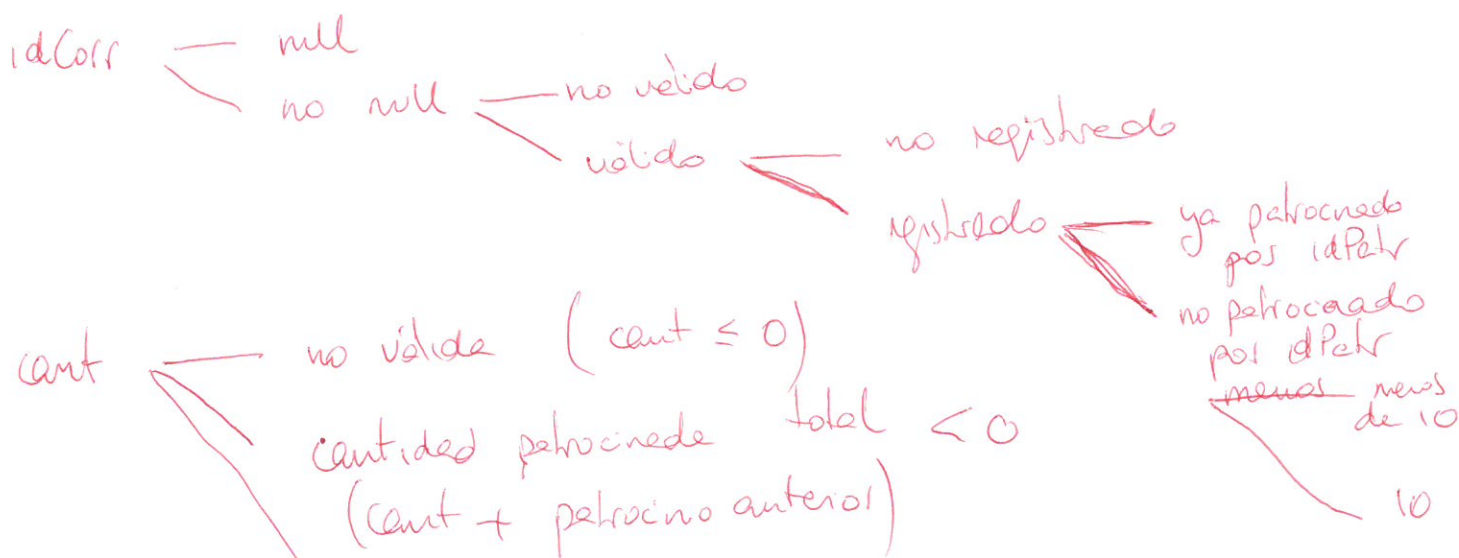 idCorr
null
no null
no válido
válido
no registrado
registrado
ya patrocinado
por idPatr
no patrocinado
por idPatr
menos menos
de 10
10
cant
no válida (cant ≤ 0)
cantidad patrocinada total < 0
(cant + patrocino anterior)